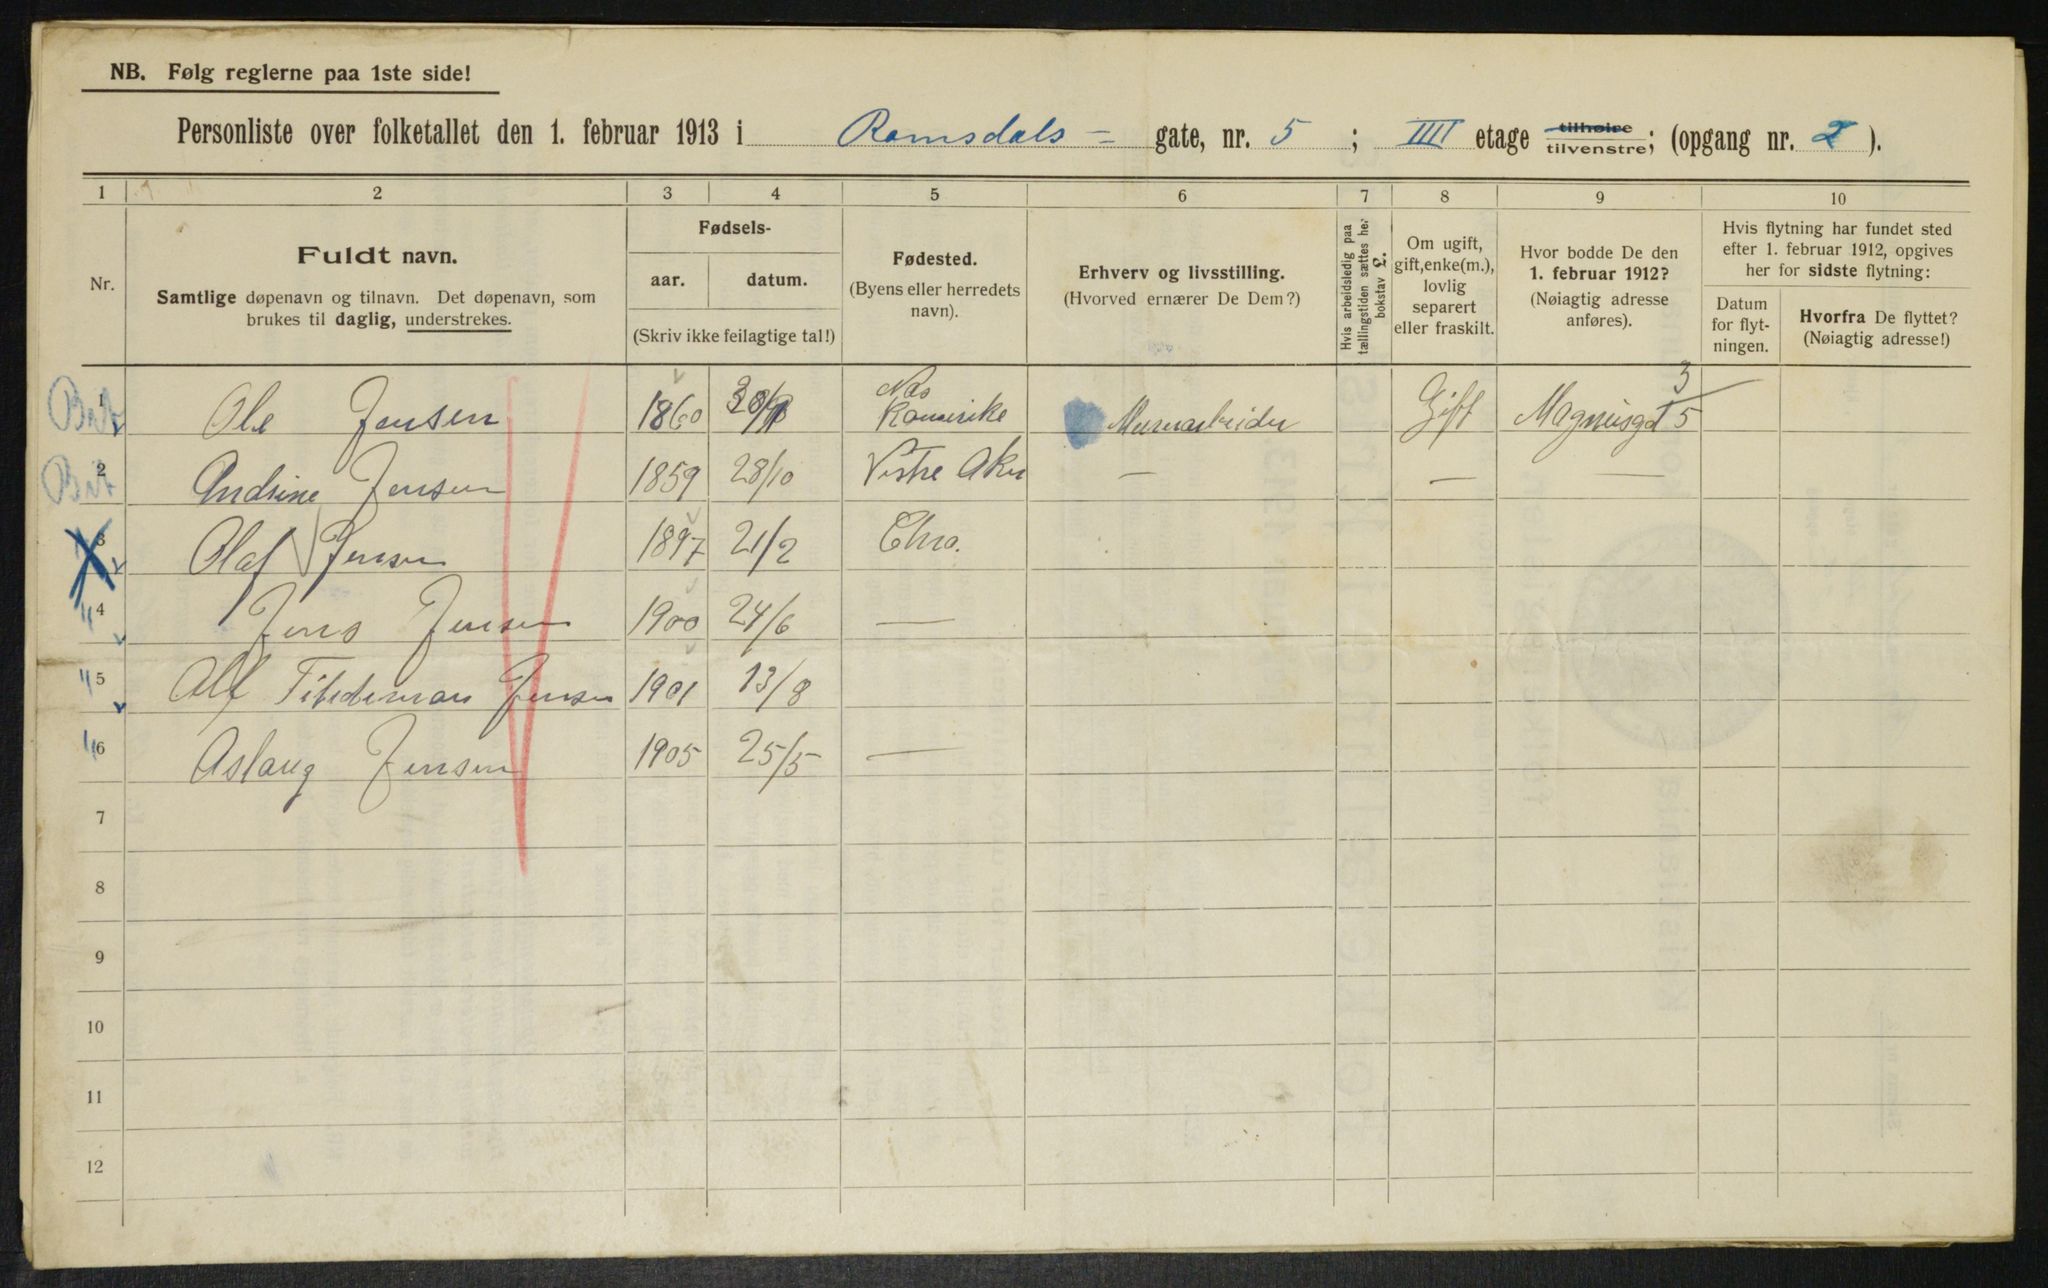 NB. Følg reglerne paa 1ste side!
Personliste over folketallet den 1. februar 1913 i Romsdals- gate, nr. 5; IIII etage tilhøire tilvenstre; (opgang nr. 2).
1 2 3 4 5 6 7 8 9 10
Nr.
Fuldt navn.
Samtlige døpenavn og tilnavn. Det døpenavn, som
brukes til daglig, understrekes.
Fødsels-
aar. datum.
(Skriv ikke feilagtige tal!)
Fødested.
(Byens eller herredets
navn).
Erhverv og livsstilling.
(Hvorved ernærer De Dem?)
Hvis arbeidsledig paa
tællingstiden sættes her
bokstav L.
Om ugift,
gift, enke(m.),
lovlig
separert
eller fraskilt.
Hvor bodde De den
1. februar 1912?
(Nøiagtig adresse
anføres).
Hvis flytning har fundet sted
efter 1. februar 1912, opgives
her for sidste flytning:
Datum
for flyt-
ningen.
Hvorfra De flyttet?
(Nøiagtig adresse!)
1 Ole Jensen 1860 Nes Romerike Murarbeider Gift Magnusgt 5 3
2 Andrine Jensen 1859 28/10 Vestre Aker — — —
3 Olaf Jensen 1897 21/2 Chra.
4 Jens Jensen 1900 24/6 —
5 Alf Jensen 1901 13/8
6 Aslaug Jensen 1905 25/5 —
7
8
9
10
11
12